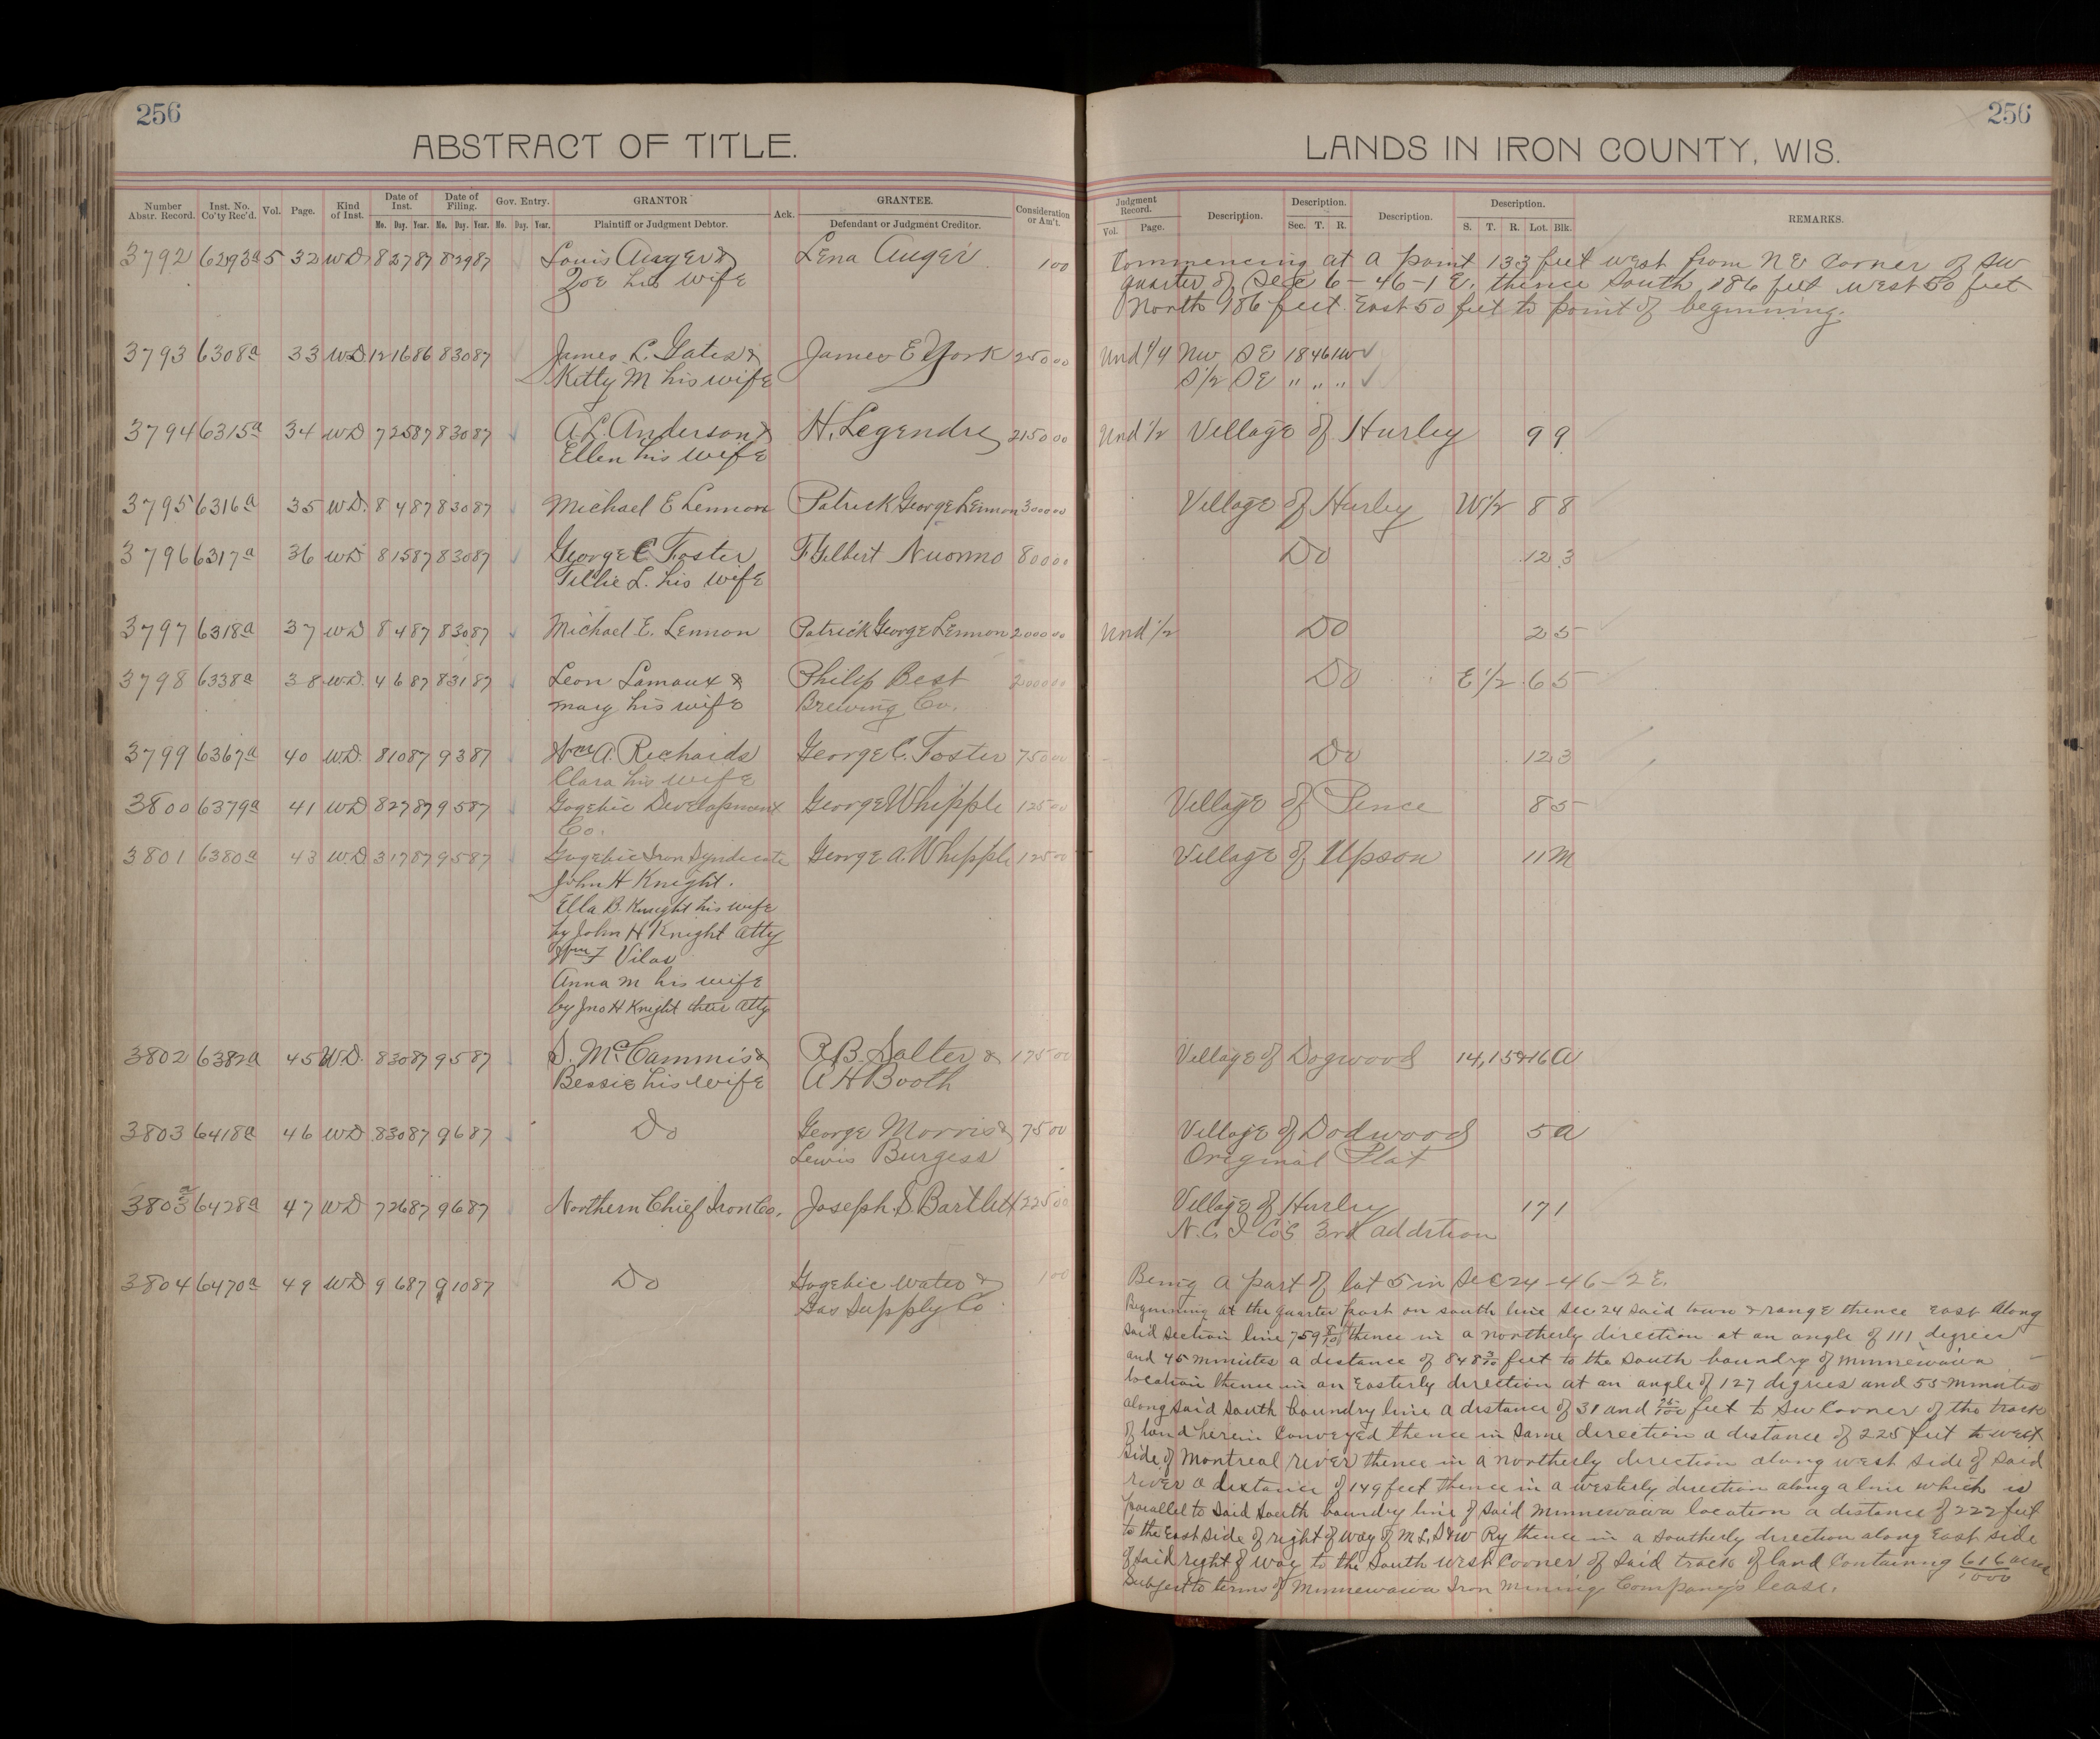 256
ABSTRACT OF TITLE.
256
LANDS IN IRON COUNTY, WIS.
Number Abstr. Record. Inst. No. Co'ty Rec'd. Vol. Page. Kind of Inst. Date of Inst. Mo. Day. Year. Date of Filing. Mo. Day. Year. Gov. Entry. Mo. Day. Year. GRANTOR Plaintiff or Judgment Debtor. Ack. GRANTEE. Defendant or Judgment Creditor. Consideration or Am't.
Judgment Record. Vol. Page. Description. Description. Sec. T. R. Description. Description. S. T. R. Lot. Blk. REMARKS.
3792 6293a 5 32 WD 8 27 87 8 29 87 Louis Auger & Lena Auger 1 00 Commencing at a point 133 feet west from NE Corner of SW
Zoe his wife quarter of Sec 6-46-1 E. thence South 186 feet west 50 feet
North 186 feet East 50 feet to point of beginning.
3793 6308a 33 WD 12 16 86 8 30 87 James L. Gates & James E York 250 00 Und 1/4 NW SE 18 46 1W ✓
Kitty M his wife S1/2 SE " " " ✓
3794 6315a 34 WD 7 25 87 8 30 87 A L Anderson & H. Legendre 2150 00 Und 1/2 Village of Hurley 9 9
Ellen his wife
3795 6316a 35 WD. 8 4 87 8 30 87 Michael E Lennon Patrick George Lennon 3000 00 Village of Hurley W1/2 8 8
3796 6317a 36 WD 8 15 87 8 30 87 George C Foster F Gilbert Nuormo 800 00 Do 12 3
Tillie L. his wife
3797 6318a 37 WD 8 4 87 8 30 87 Michael E. Lennon Patrick George Lennon 2000 00 Und 1/2 Do 2 5
3798 6338a 38 WD. 4 6 87 8 31 87 Leon Lamaux & Philip Best 2000 00 Do E1/2 6 5
Mary his wife Brewing Co.
3799 6367a 40 W.D. 8 10 87 9 3 87 Wm A. Richards George C. Foster 750 00 Do 12 3
Clara his wife
3800 6379a 41 WD 8 27 87 9 5 87 Gogebic Development George Whipple 125 00 Village of Pence 8 5
Co.
3801 6380a 43 W.D 3 17 87 9 5 87 Gogebic Iron Syndicate George A. Whipple 125 00 Village of Upson 11 M
John H Knight.
Ella B. Knight his wife
by John H Knight Atty
Wm F Vilas
Anna M his wife
by Jno H Knight their Atty
3802 6382a 45 W.D. 8 30 87 9 5 87 S. McCammis & R.B. Salter & 175 00 Village of Dogwood 14, 15 & 16 A
Bessie his wife A H Booth
3803 6418a 46 WD 8 30 87 9 6 87 Do George Morris & 75 00 Village of Dodwood 5 A
Lewis Burgess Original Plat
3803a 6428a 47 WD 7 26 87 9 6 87 Northern Chief Iron Co. Joseph. S. Bartlett 225 00 Village of Hurley 17 1
N. C. I Co's 3rd addition
3804 6470a 49 WD 9 6 87 9 10 87 Do Gogebic Water & 1 00 Being a part of lot 5 in Sec 24-46-2 E.
Gas Supply Co Beginning at the quarter post on south line Sec 24 said town & range thence East along
said section line 759 thence in a northerly direction at an angle of 111 degrees
and 45 minutes a distance of 848 feet to the South boundry of Minnewawa
location thence in an Easterly direction at an angle of 127 degrees and 55 minutes
along said South boundry line a distance of 31 and feet to SW Corner of the track
of land herein Conveyed thence in Same direction a distance of 225 feet to west
side of Montreal river thence in a northerly direction along west side of said
river a distance of 149 feet thence in a westerly direction along a line which is
parallel to said South boundry line of said Minnewawa location a distance of 222 feet
to the East side of right of way of M L S & W Ry thence in a southerly direction along East side
of said right of way to the South west Corner of said track of land Containing 616/1000 acres
Subject to terms of Minnewawa Iron Mining Company's lease.